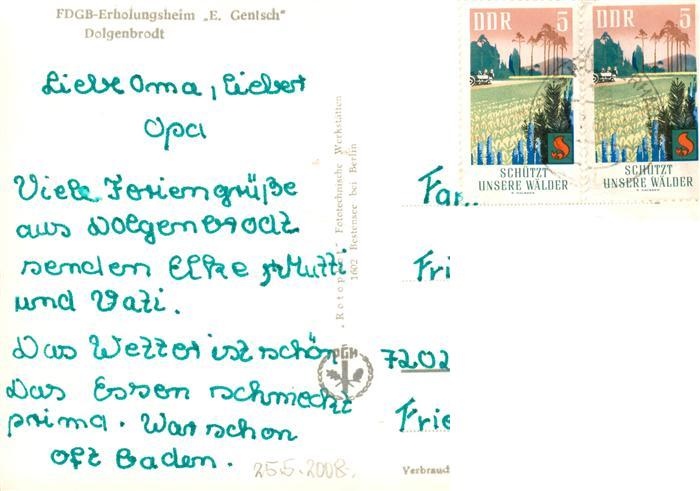 FDGB-Erholungsheim „E. Gentsch"
Dolgenbrodt
Liebe Oma, Lieber
Opa
Viele Feriengrüße
aus Dolgenbrodt
senden Elke, Mutti
und Vati.
Das Wetter ist schön
Das Essen schmeckt
prima. War schon
oft baden.
25.5.2008.
Fototechnische Werkstätten
1602 Bestensee bei Berlin
PGH
DDR 5
SCHÜTZT
UNSERE WÄLDER
DDR 5
SCHÜTZT
UNSERE WÄLDER
Fam
Fri
7202
Frie
Verbrauc